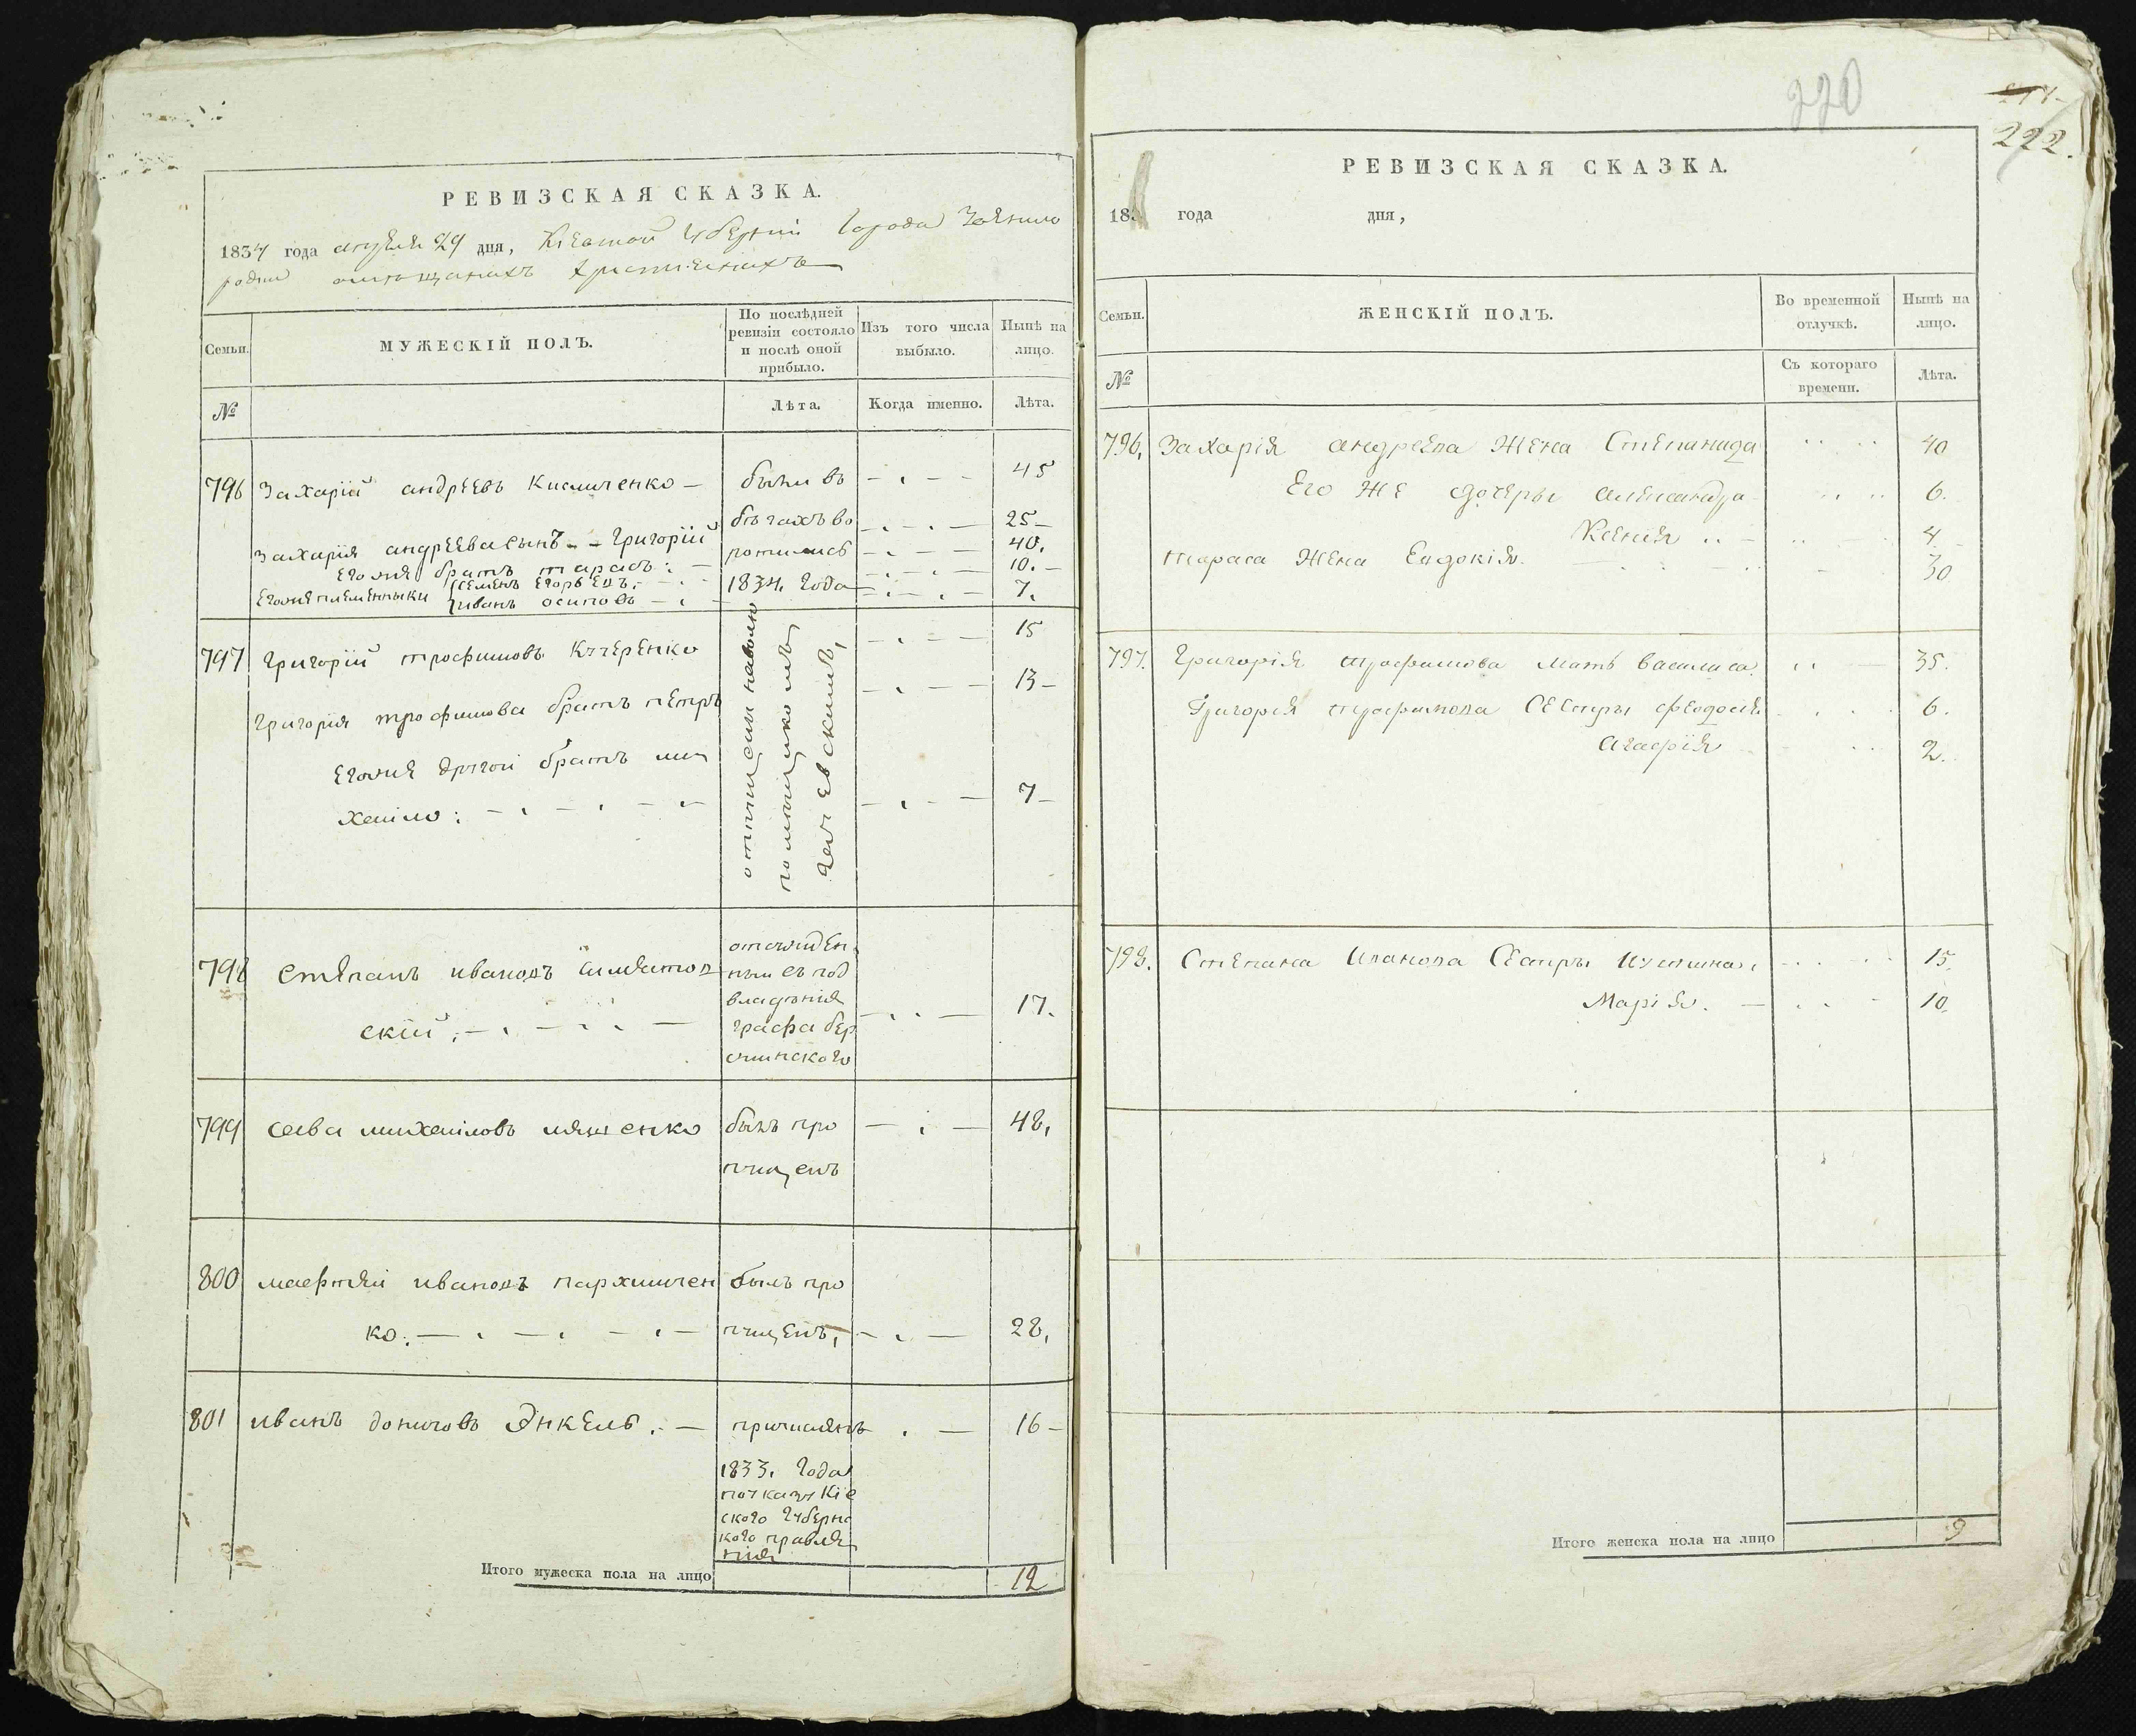 РЕВИЗСКАЯ СКАЗКА.
1834 года апреля 29 дня, Кіевской Губерніи Города
христіянахъ
Семьи.
МУЖЕСКІЙ ПОЛЪ.
По послѣдней ревизіи состояло и послѣ оной прибыло.
Изъ того числа выбыло.
Нынѣ на лицо.
№
Лѣта.
Когда именно.
Лѣта.
796 Захарій андреевъ были въ 45
Захарія андреева сынъ Григорій бѣгахъ во 25
Его же братъ тарасъ ротились 40.
Его же племенныки семенъ 1834. года 10.
иванъ осиповъ 7.
797 Григорій трофимовъ Кучеренко 15
Григорія трофимова братъ петръ 13
Его же другой братъ ми
хайло: 7
отпущены на волю
798 степанъ ивановъ 17.
скій:
подъ
владѣнія
графа
799 савва михайловъ былъ про 48,
пущенъ
800 ивановъ пархимчен былъ про
ко: пущенъ, 28,
801 иванъ Энкель. причисленъ 16
1833. года
по указу Кіе
ского Губернс
кого правле
нія
Итого мужеска пола на лицо 12
220
222.
РЕВИЗСКАЯ СКАЗКА.
183 года дня,
Семьи.
ЖЕНСКІЙ ПОЛЪ.
Во временной отлучкѣ.
Нынѣ на лицо.
№
Съ котораго времени.
Лѣта.
796, Захарія андреева Жена Степанида 40
Его же дочеры александра 6.
Ксенія 4
тараса Жена Евдокія. 30
797. Григорія трофимова мать василиса 35.
Григорія трофимова Сестры феодосія 6.
Агафія 2.
798. Степана Иванова Сестры 15.
Марія. 10.
Итого женска пола на лицо 9